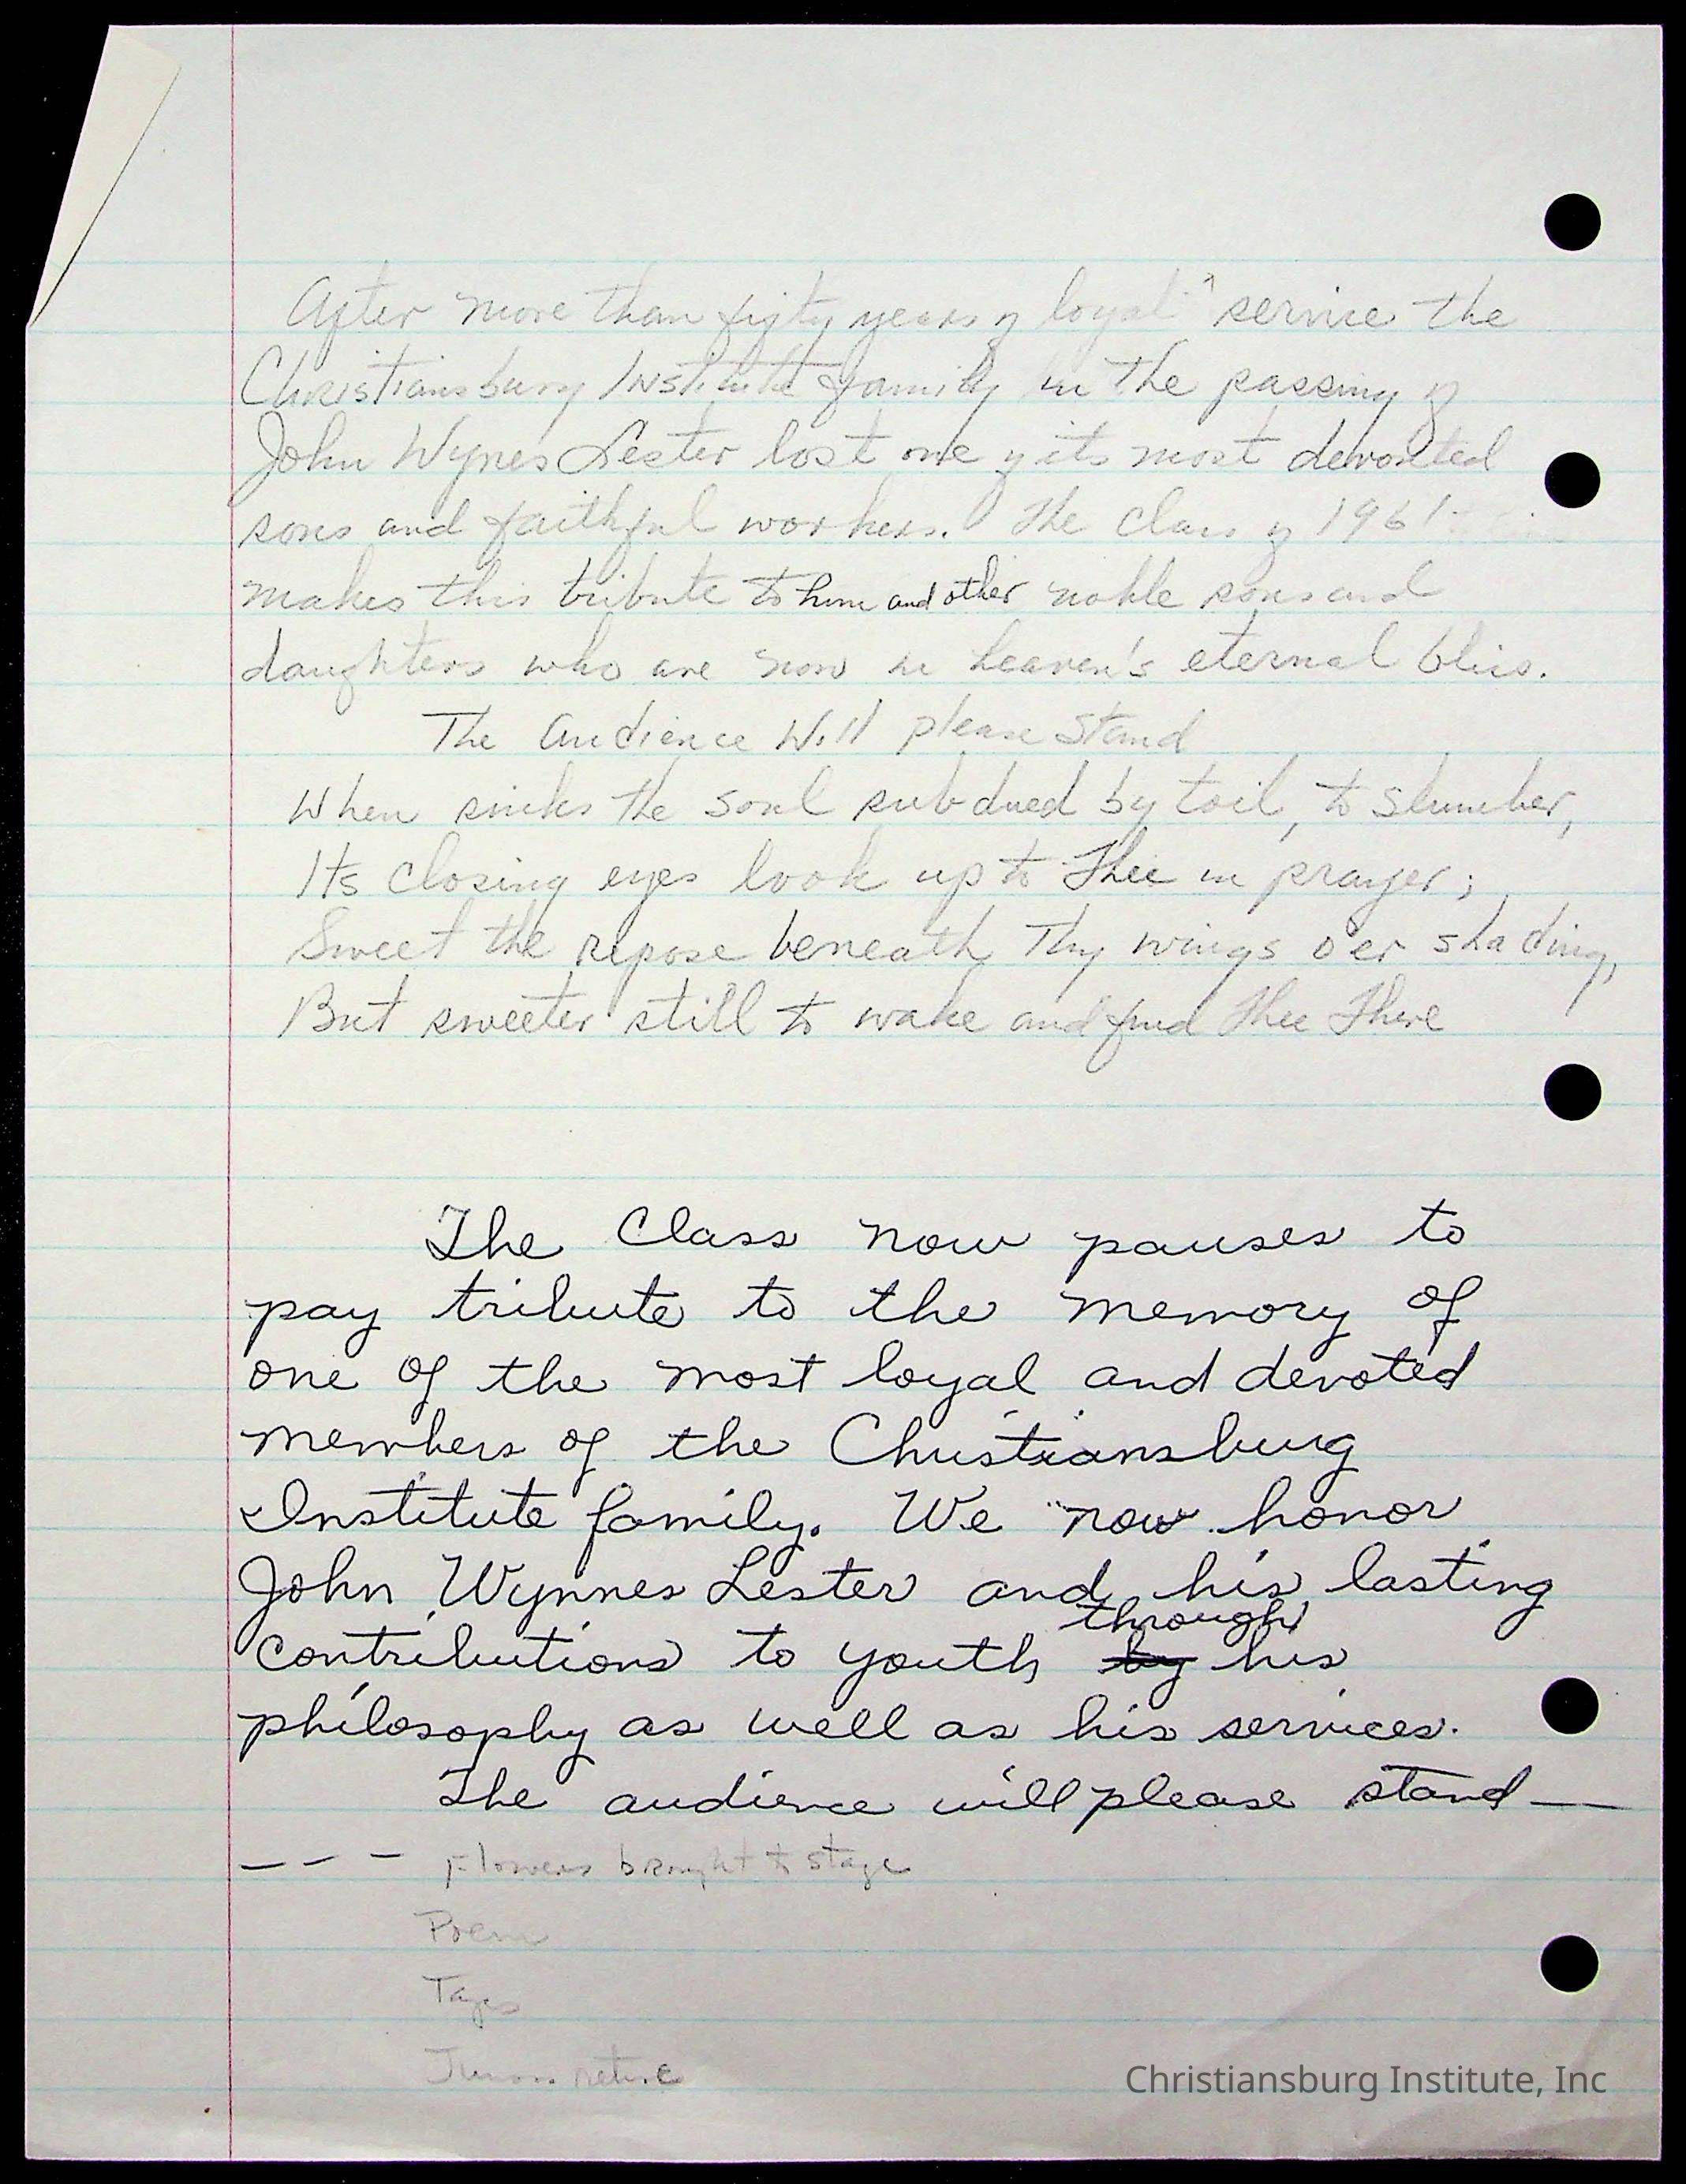 After more than fifty years of loyal service the
Christiansburg Institute family in the passing of
John Wynes Lester lost one of its most devoted
sons and faithful workers. The class of 1961
makes this tribute to him and other noble sons and
daughters who are now in heaven's eternal bliss.
The Audience Will please stand
When sinks the soul subdued by toil, to slumber,
Its closing eyes look up to Thee in prayer;
Sweet the repose beneath Thy wings o'er shading,
But sweeter still to wake and find Thee There
The Class now pauses to
pay tribute to the memory of
one of the most loyal and devoted
members of the Christiansburg
Institute family. We now honor
John Wynnes Lester and his lasting
through
contributions to youth by his
philosophy as well as his services.
The audience will please stand —
- - - Flowers brought to stage
Poem
Taps
retire
Christiansburg Institute, Inc